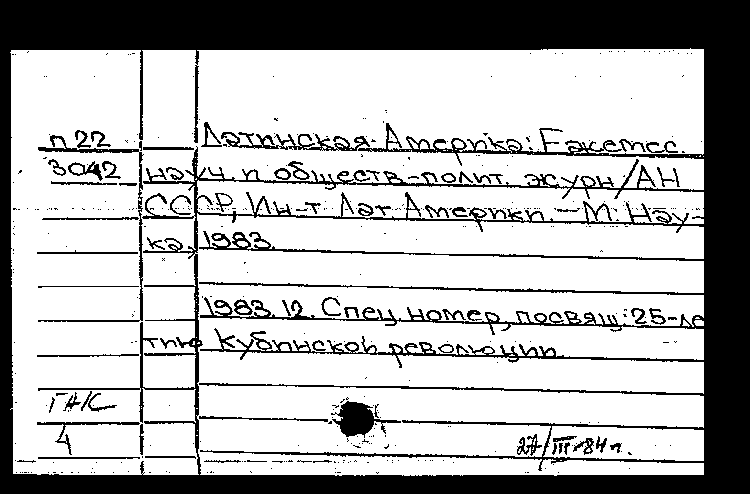 п 22
Латинская Америка: Ежемес.
3042
науч. и обществ-полит. журн/АН
СССР, Ин-т Лат. Америки. — М: Нау-
ка, 1983.
1983. 12. Спец. номер, посвящ: 25-ле
тию Кубинской революции
4
27/III-84г.